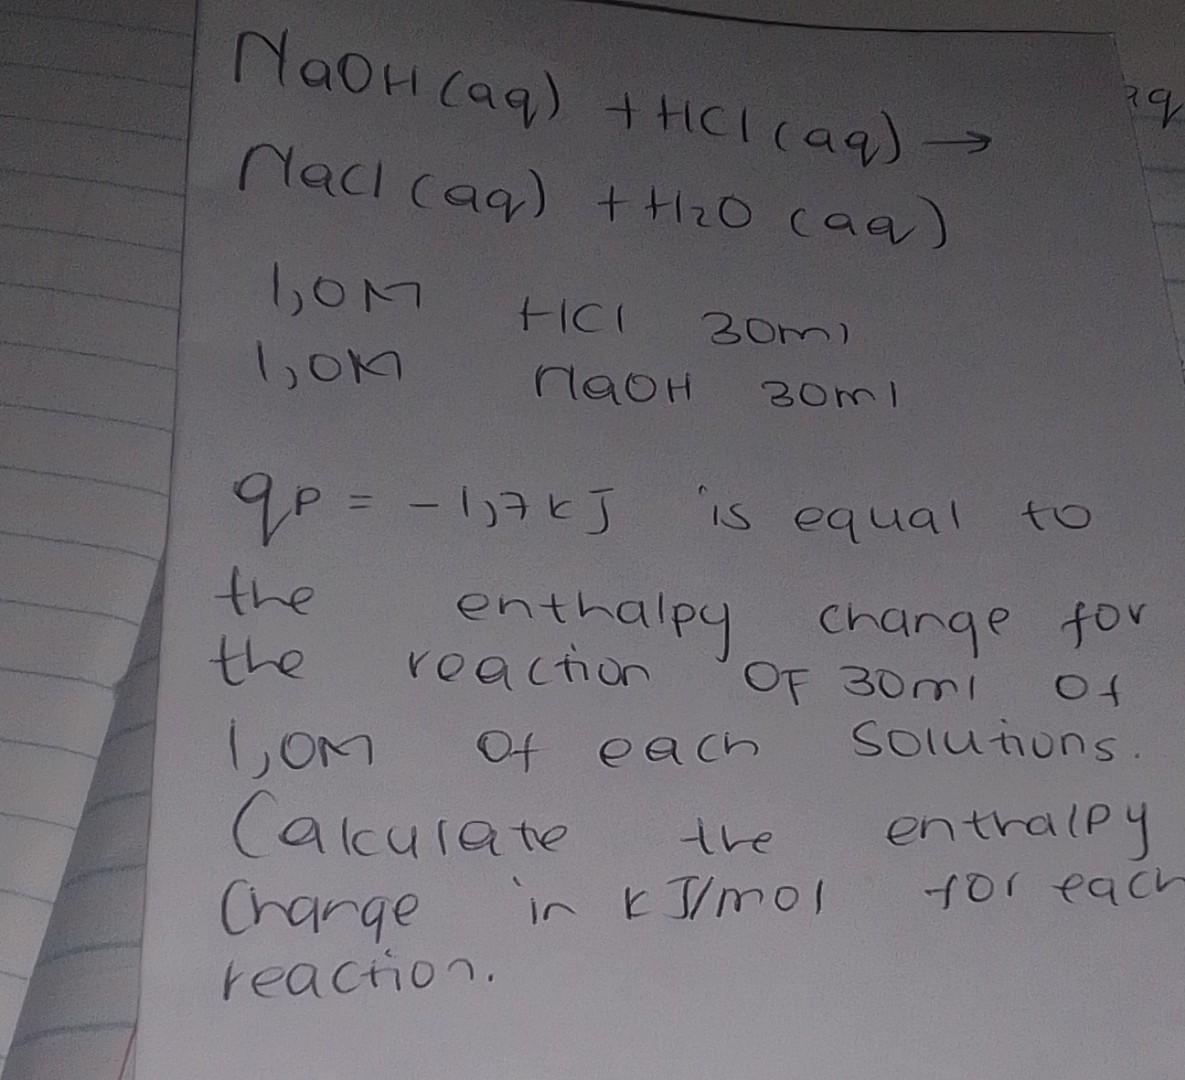 NaOH (aq) + HCl (aq) →
NaCl (aq) + H₂O (aq)
1,0M HCl 30ml
1,0M NaOH 30ml
qp = -1,7 kJ is equal to
the enthalpy change for
the reaction OF 30ml of
1,0M of each solutions.
Calculate the enthalpy
Change in kJ/mol for each
reaction.